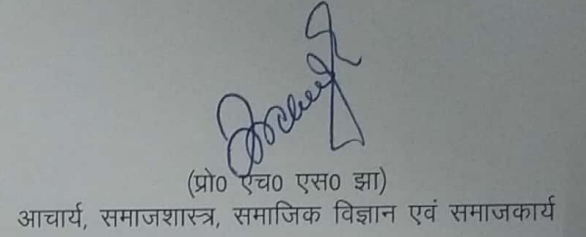 (प्रो० एच० एस० झा)
आचार्य, समाजशास्त्र, समाजिक विज्ञान एवं समाजकार्य